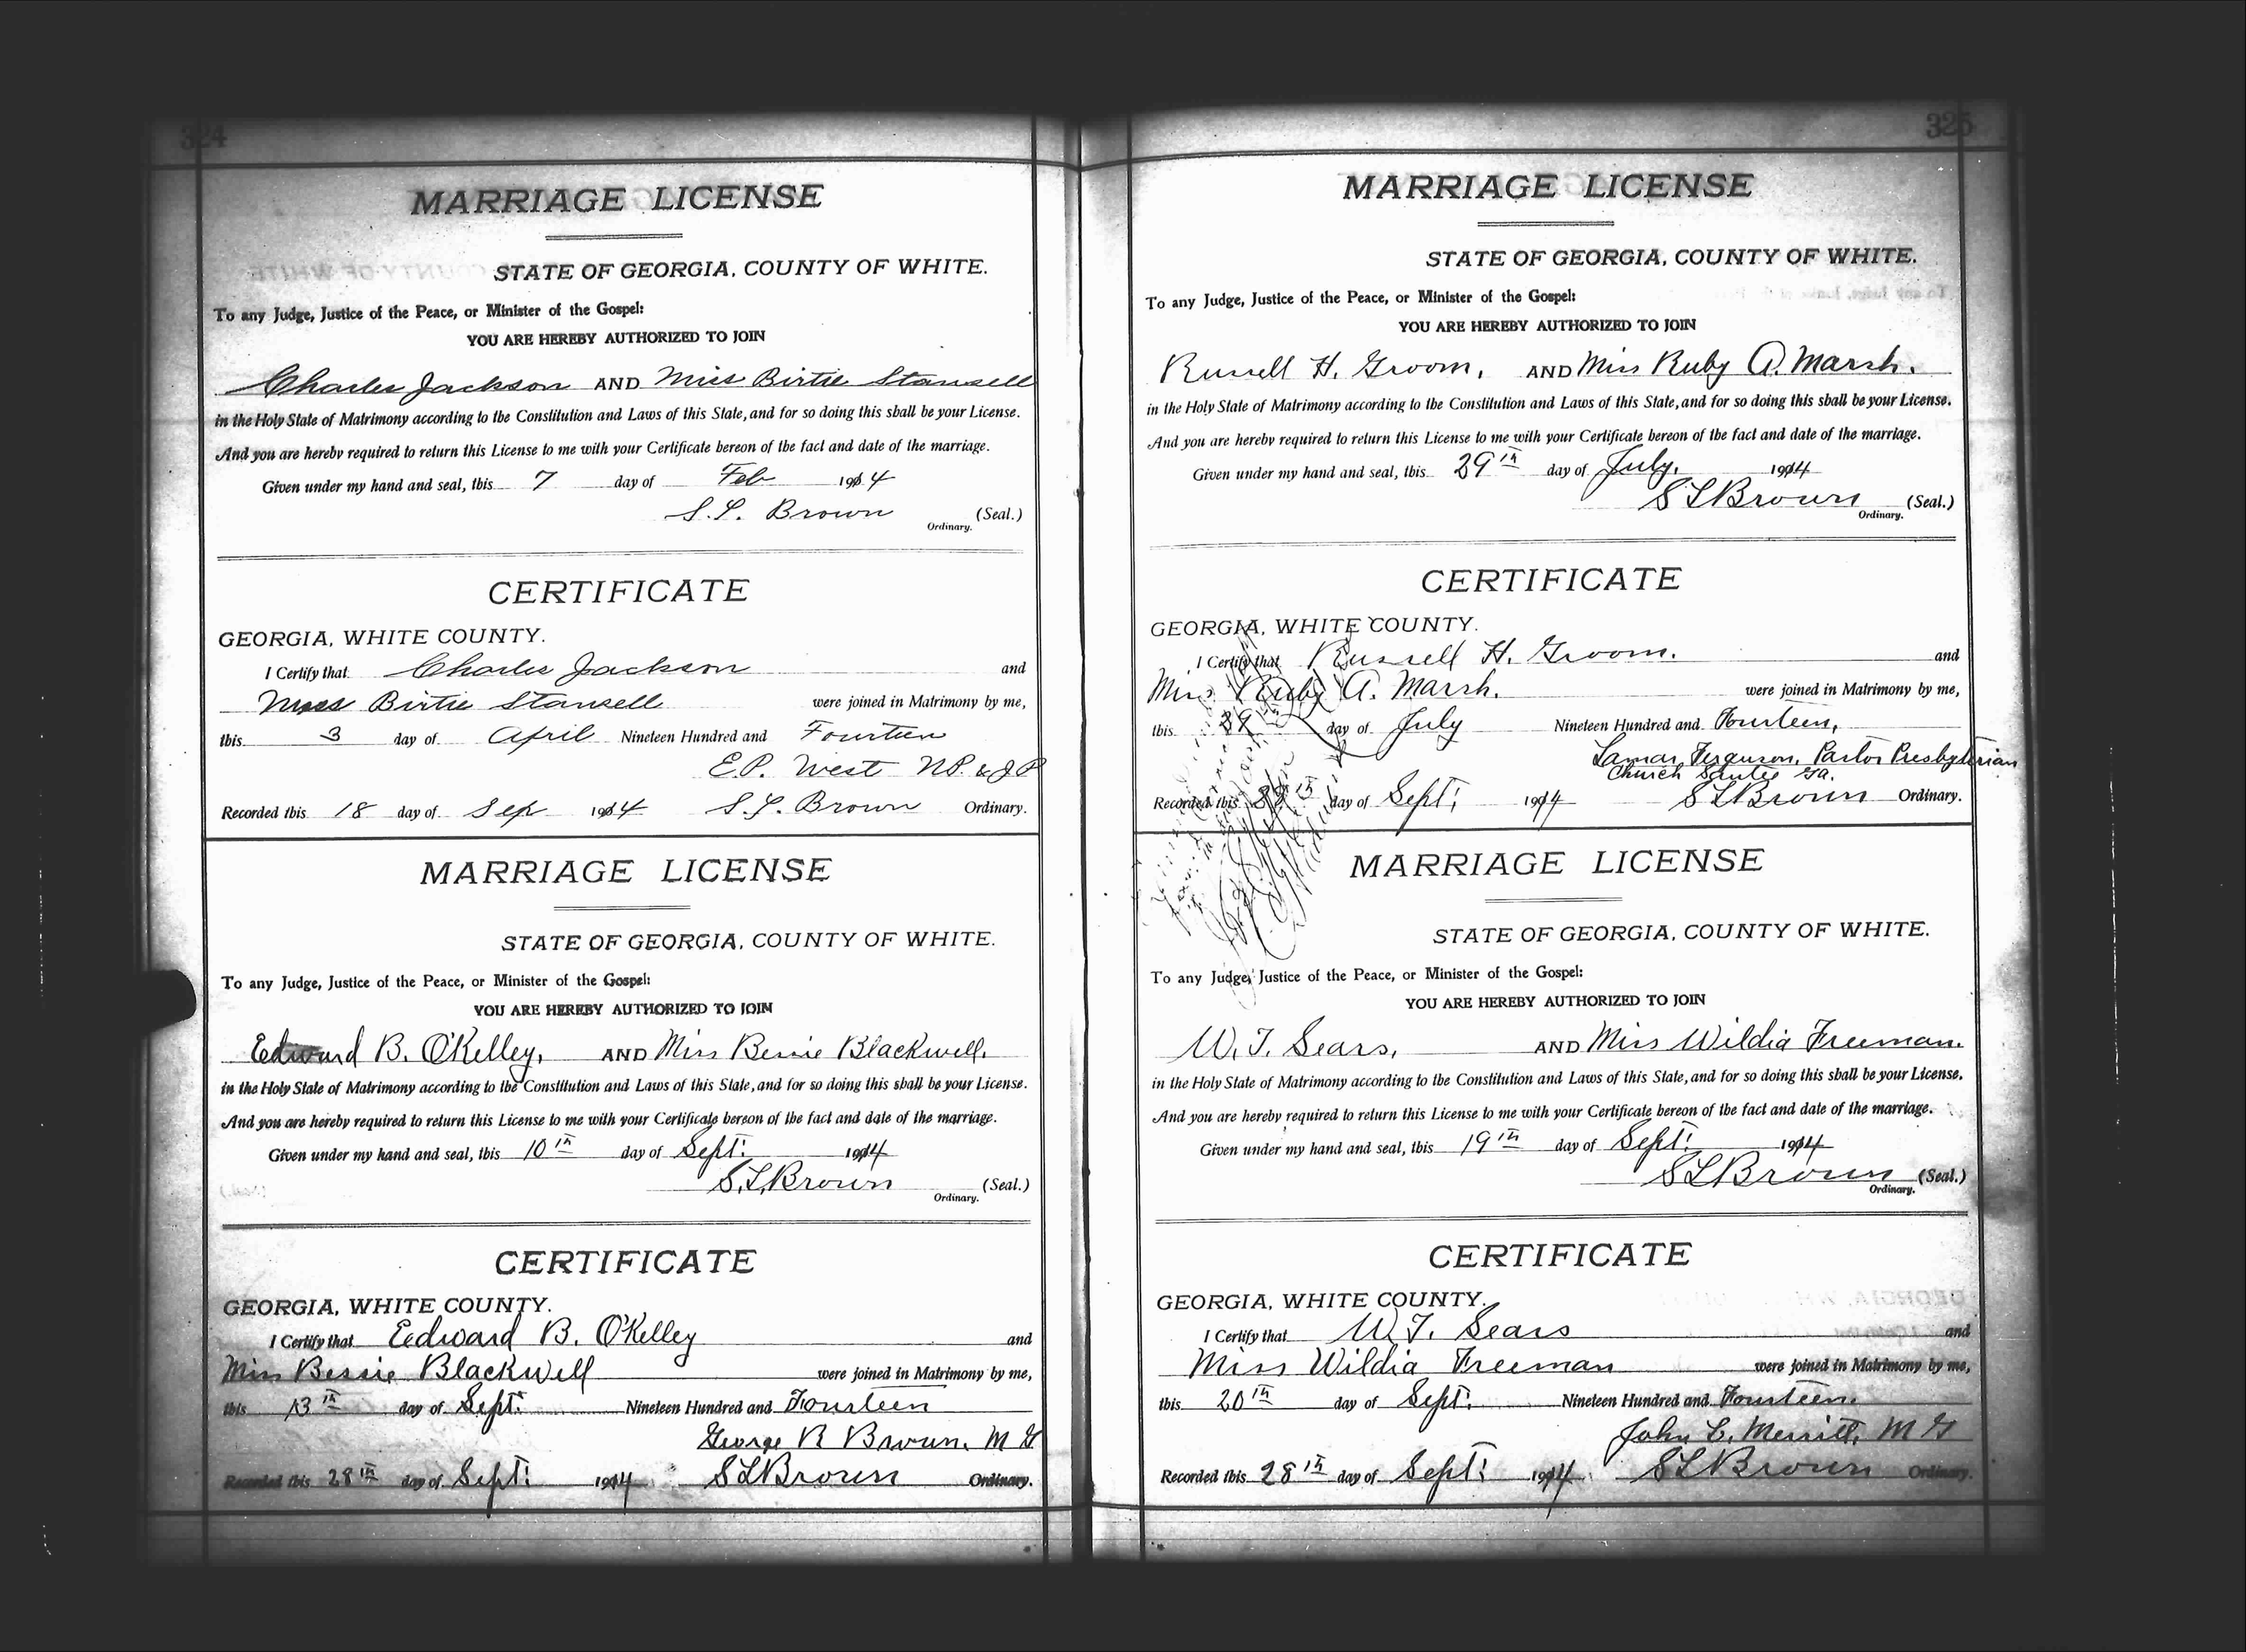 324
MARRIAGE LICENSE
STATE OF GEORGIA, COUNTY OF WHITE.
To any Judge, Justice of the Peace, or Minister of the Gospel:
YOU ARE HEREBY AUTHORIZED TO JOIN
Charles Jackson AND Miss Birtie Stansell
in the Holy State of Matrimony according to the Constitution and Laws of this State, and for so doing this shall be your License.
And you are hereby required to return this License to me with your Certificate hereon of the fact and date of the marriage.
Given under my hand and seal, this 7 day of Feb 1914
S. L. Brown (Seal.)
Ordinary.
CERTIFICATE
GEORGIA, WHITE COUNTY.
I Certify that Charles Jackson and
Miss Birtie Stansell were joined in Matrimony by me,
this 3 day of April Nineteen Hundred and Fourteen
E.P. West N.P. & J P
Recorded this 18 day of Sep 1914 S. L. Brown Ordinary.
MARRIAGE LICENSE
STATE OF GEORGIA, COUNTY OF WHITE.
To any Judge, Justice of the Peace, or Minister of the Gospel:
YOU ARE HEREBY AUTHORIZED TO JOIN
Edward B. O'Kelley, AND Miss Bessie Blackwell.
in the Holy State of Matrimony according to the Constitution and Laws of this State, and for so doing this shall be your License.
And you are hereby required to return this License to me with your Certificate hereon of the fact and date of the marriage.
Given under my hand and seal, this 10th day of Sept: 1914
S. L. Brown (Seal.)
Ordinary.
CERTIFICATE
GEORGIA, WHITE COUNTY.
I Certify that Edward B. O'Kelley and
Miss Bessie Blackwell were joined in Matrimony by me,
this 13th day of Sept: Nineteen Hundred and Fourteen
George R Brown. M G
Recorded this 28th day of Sept: 1914 S L Brown Ordinary.
325
MARRIAGE LICENSE
STATE OF GEORGIA, COUNTY OF WHITE.
To any Judge, Justice of the Peace, or Minister of the Gospel:
YOU ARE HEREBY AUTHORIZED TO JOIN
Russell H. Groom, AND Miss Ruby A. Marsh.
in the Holy State of Matrimony according to the Constitution and Laws of this State, and for so doing this shall be your License.
And you are hereby required to return this License to me with your Certificate hereon of the fact and date of the marriage.
Given under my hand and seal, this 29th day of July. 1914
S L Brown (Seal.)
Ordinary.
CERTIFICATE
GEORGIA, WHITE COUNTY.
I Certify that Russell H. Groom. and
Miss Ruby A. Marsh. were joined in Matrimony by me,
this 29 day of July Nineteen Hundred and Fourteen,
Lamar Ferguson, Pastor Presbyterian
Church Santee Ga.
Recorded this 28th day of Sept: 1914 S L Brown Ordinary.
MARRIAGE LICENSE
STATE OF GEORGIA, COUNTY OF WHITE.
To any Judge, Justice of the Peace, or Minister of the Gospel:
YOU ARE HEREBY AUTHORIZED TO JOIN
W. T. Sears, AND Miss Wildia Freeman.
in the Holy State of Matrimony according to the Constitution and Laws of this State, and for so doing this shall be your License.
And you are hereby required to return this License to me with your Certificate hereon of the fact and date of the marriage.
Given under my hand and seal, this 19th day of Sept: 1914
S L Brown (Seal.)
Ordinary.
CERTIFICATE
GEORGIA, WHITE COUNTY.
I Certify that W. T. Sears and
Miss Wildia Freeman were joined in Matrimony by me,
this 20th day of Sept: Nineteen Hundred and Fourteen.
John L. Merritt, M G
Recorded this 28th day of Sept: 1914 S L Brown Ordinary.